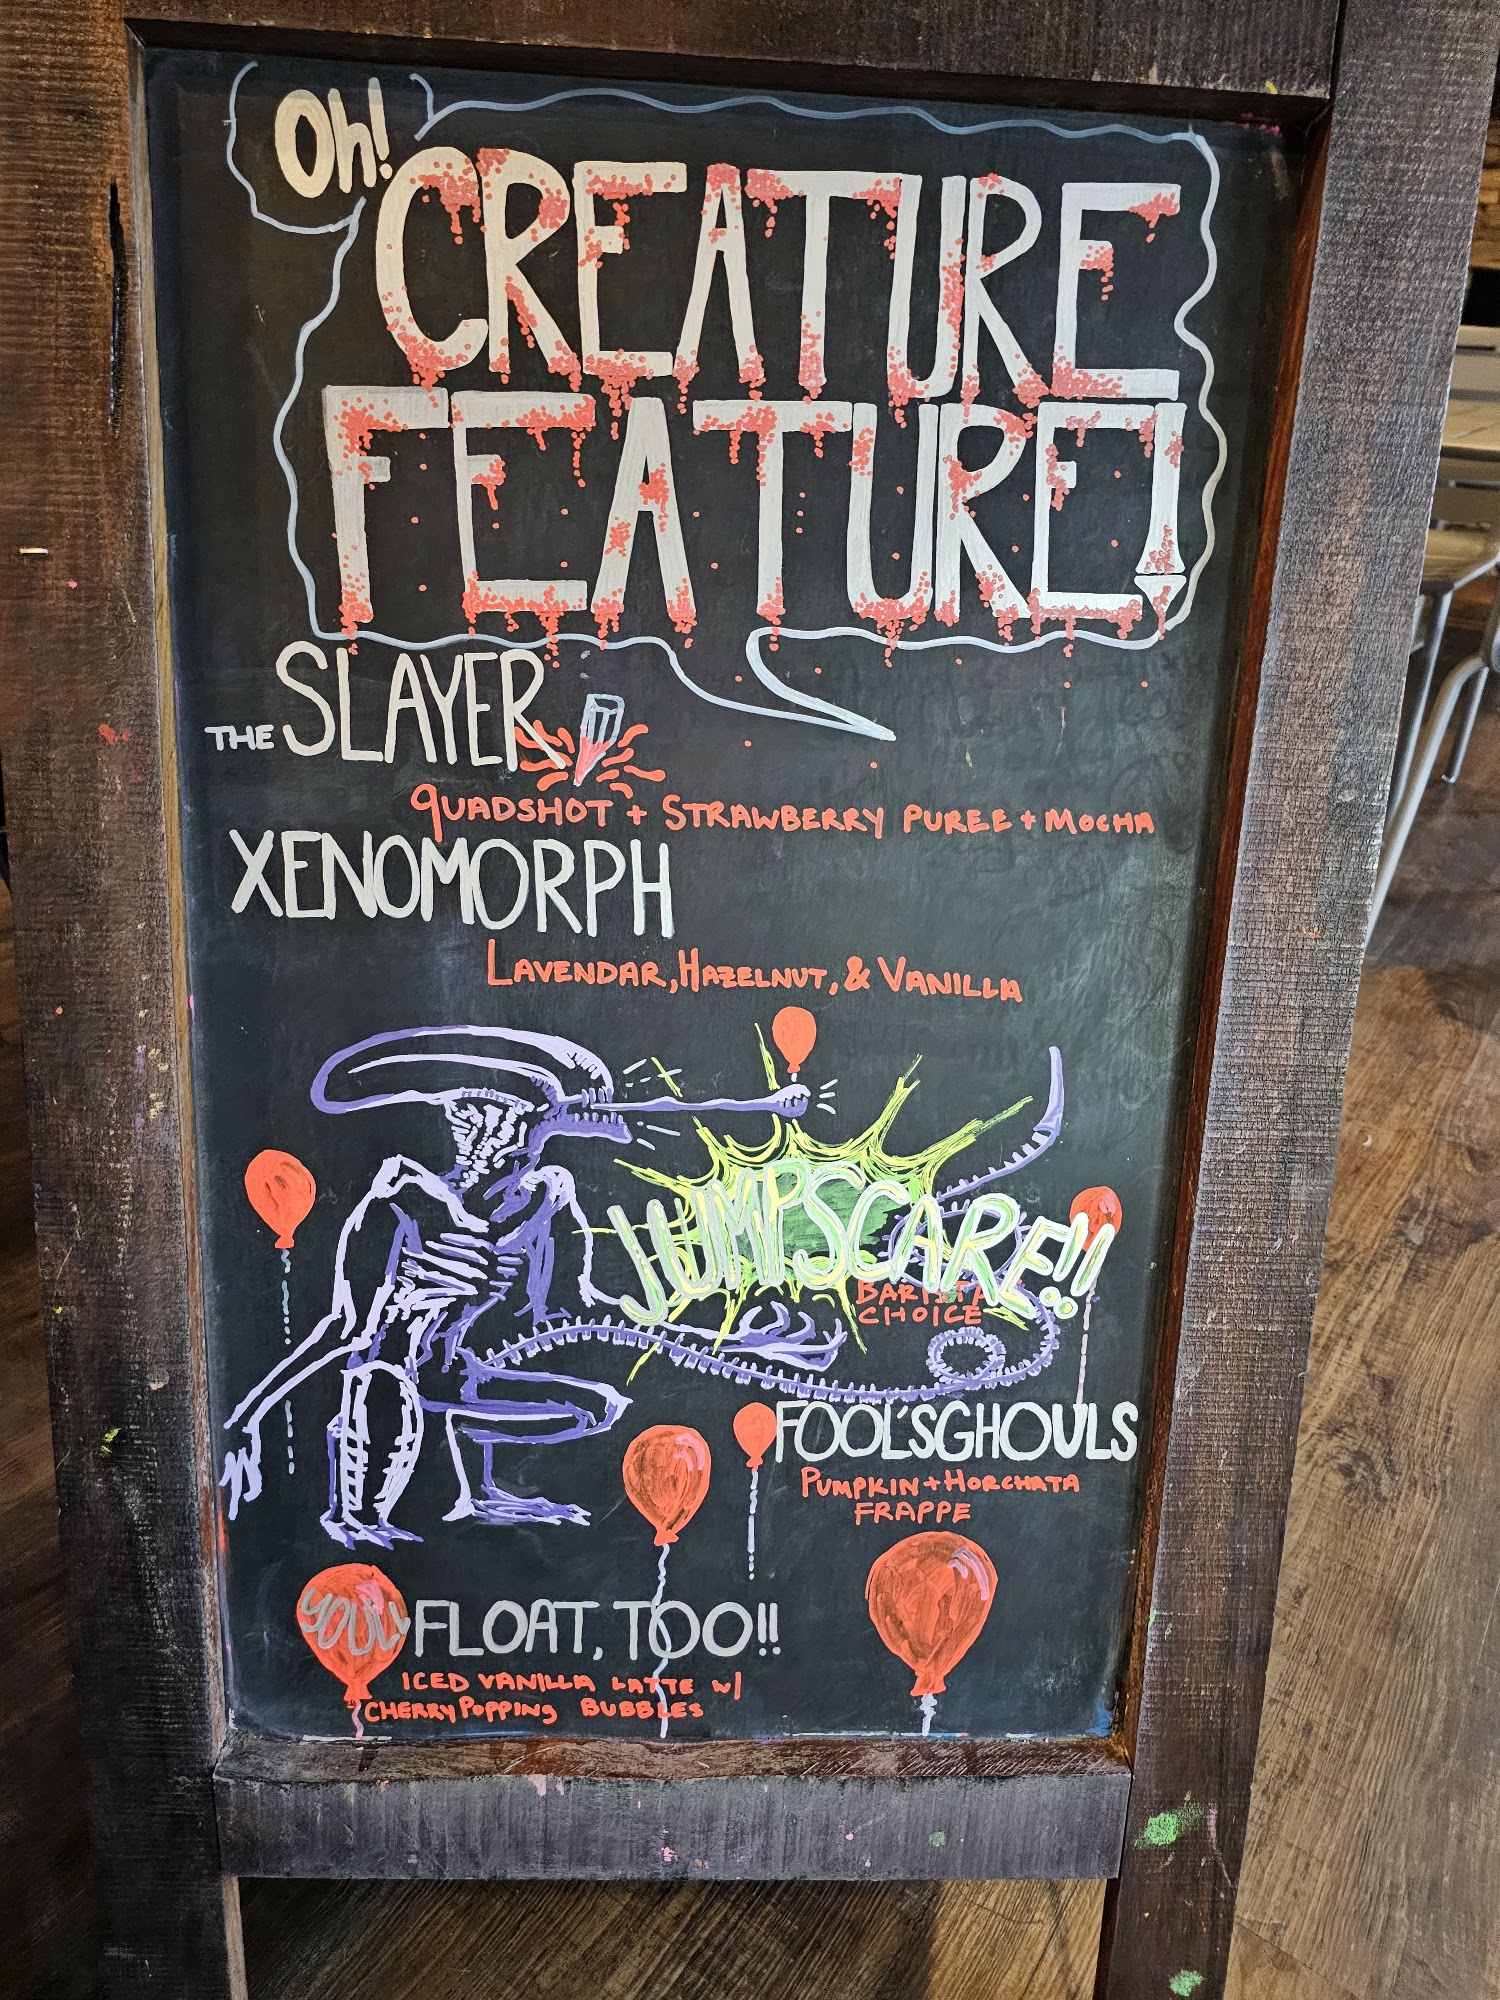 Oh!
CREATURE
FEATURE!
THE SLAYER
QUADSHOT + STRAWBERRY PUREE + MOCHA
XENOMORPH
LAVENDAR, HAZELNUT, & VANILLA
JUMPSCARE!!
BARISTA
CHOICE
FOOL'S GHOULS
PUMPKIN + HORCHATA
FRAPPE
YOU'LL FLOAT, TOO!!
ICED VANILLA LATTE W/
CHERRY POPPING BUBBLES